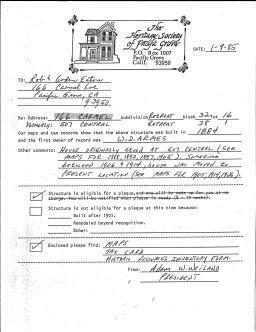 The
Heritage Society
of Pacific Grove
P. O. Box 1007
Pacific Grove
Calif. 93950
DATE: 1-9-85
TO: Rob &
166 Carmel Ave
Pacific Grove, CA
93950
Re: Address: 166 CARMEL subdivision RETREAT block 32 lot 16
FORMERLY: 507 CENTRAL RETREAT 38
Our maps and tax records show that the above structure was built in 1884
and the first owner of record was W. D. ARMES
Other comments: HOUSE ORIGINALLY STOOD AT 507 CENTRAL (SEE
MAPS FOR 1888, 1892, 1897, 1905). SOMETIME
BETWEEN 1905 & 1914, HOUSE WAS MOVED TO
PRESENT LOCATION (SEE MAPS FOR 1905, 1914, 1926).
Structure is eligible for a plaque and
Structure is not eligible for a plaque at this time because:
Built after 1901.
Remodeled beyond recognition.
Other:
Enclosed please find: MAPS
TAX CARD
HISTORIC RESOURCES INVENTORY FORM
From: ADAM W. WEILAND
PRESIDENT